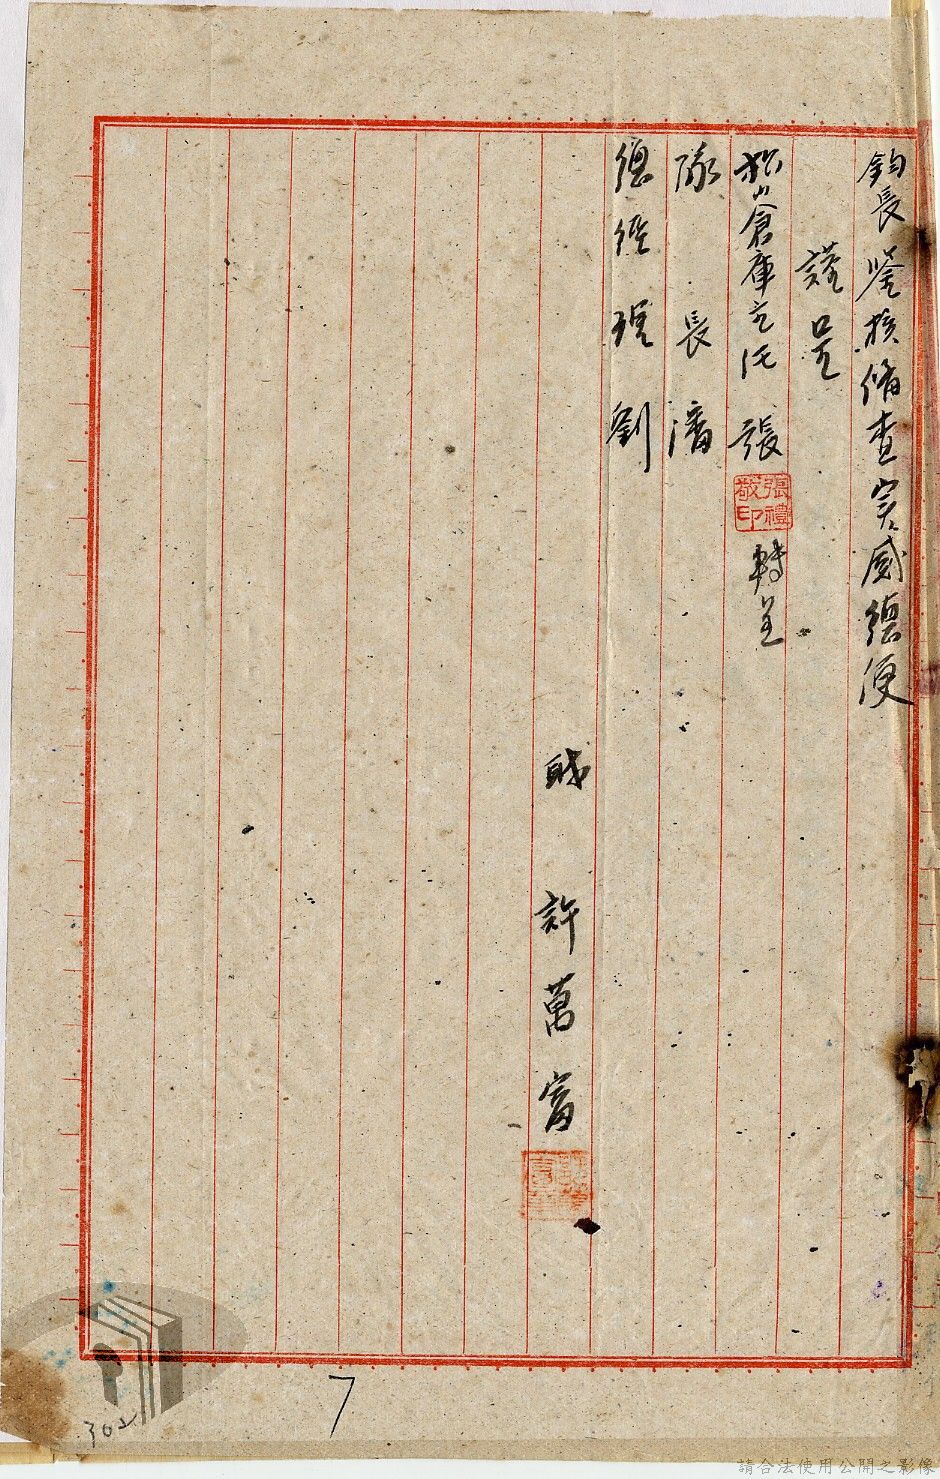 鈞長鑒核備查実感德便
謹呈
松山倉庫主任張
張禮敬印
轉呈
隊長潘
總經理劉
職 許萬富
7
302
請合法使用公開之影像